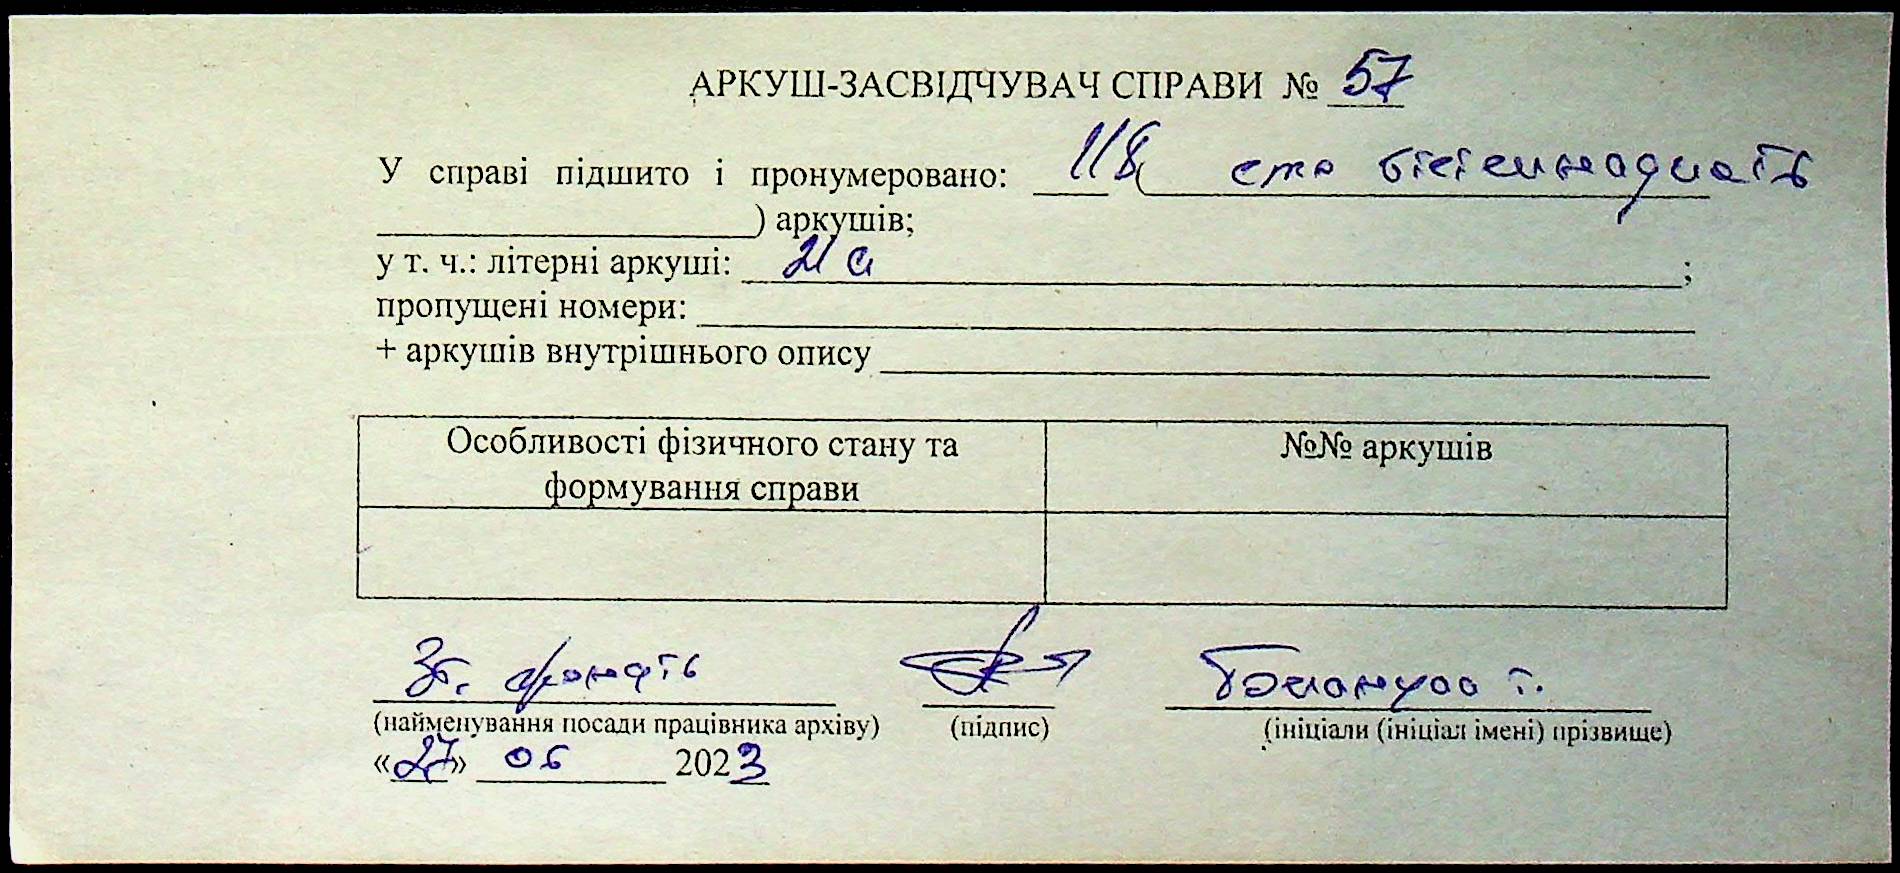 АРКУШ-ЗАСВІДЧУВАЧ СПРАВИ № 57
У справі підшито і пронумеровано: 118 ( сто вісімнадцять
) аркушів;
у т. ч.: літерні аркуші: 21 а ;
пропущені номери:
+ аркушів внутрішнього опису
Особливості фізичного стану та
формування справи
№№ аркушів
Зб. фондів
(найменування посади працівника архіву) (підпис) (ініціали (ініціал імені) прізвище)
«27» 06 2023